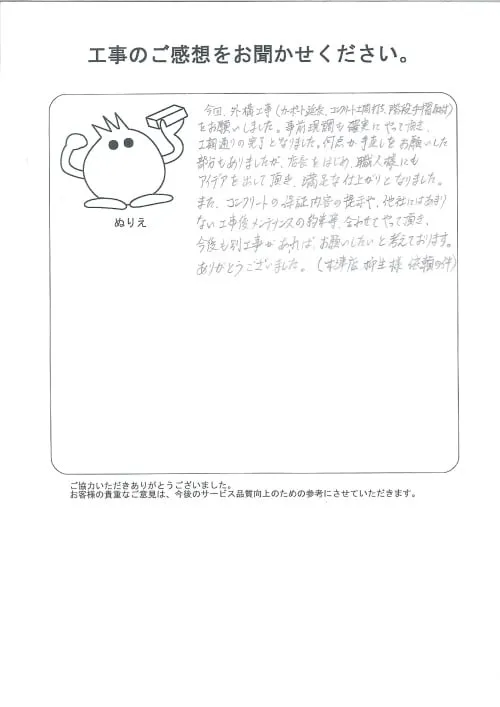 工事のご感想をお聞かせください。
今回、外構工事(カーポート延長、コンクリート土間打ち、階段手摺取付)
をお願いしました。事前現調も確実にやって頂き、
工期通りの完了となりました。何点か手直しをお願いした
部分もありましたが、店長をはじめ、職人様にも
アイデアを出して頂き、満足な仕上がりとなりました。
また、コンクリートの保証内容の提示や、他社にはあまり
ない工事後メンテナンスの約束等、合わせてやって頂き、
今後も別工事があれば、お願いしたいと考えております。
ありがとうございました。(木津店 柳生様 依頼の件)
ぬりえ
ご協力いただきありがとうございました。
お客様の貴重なご意見は、今後のサービス品質向上のための参考にさせていただきます。